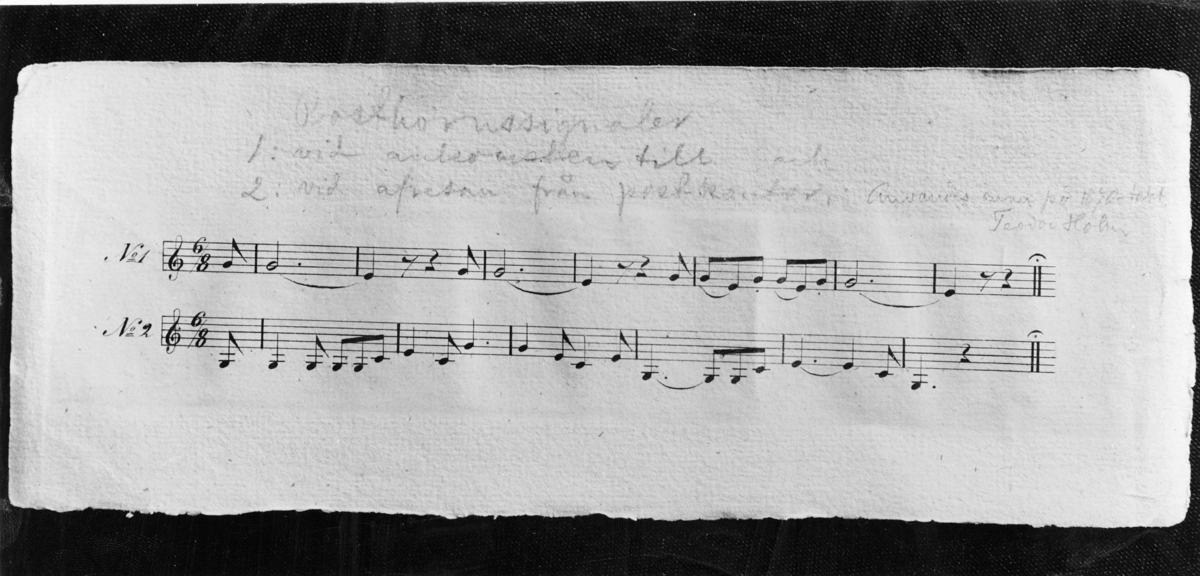 Posthornssignaler
1: vid ankomsten till och
2: vid afresan från postkontor. Användes ännu på 1870-talet
Teodor
No 1 6/8
No 2 6/8